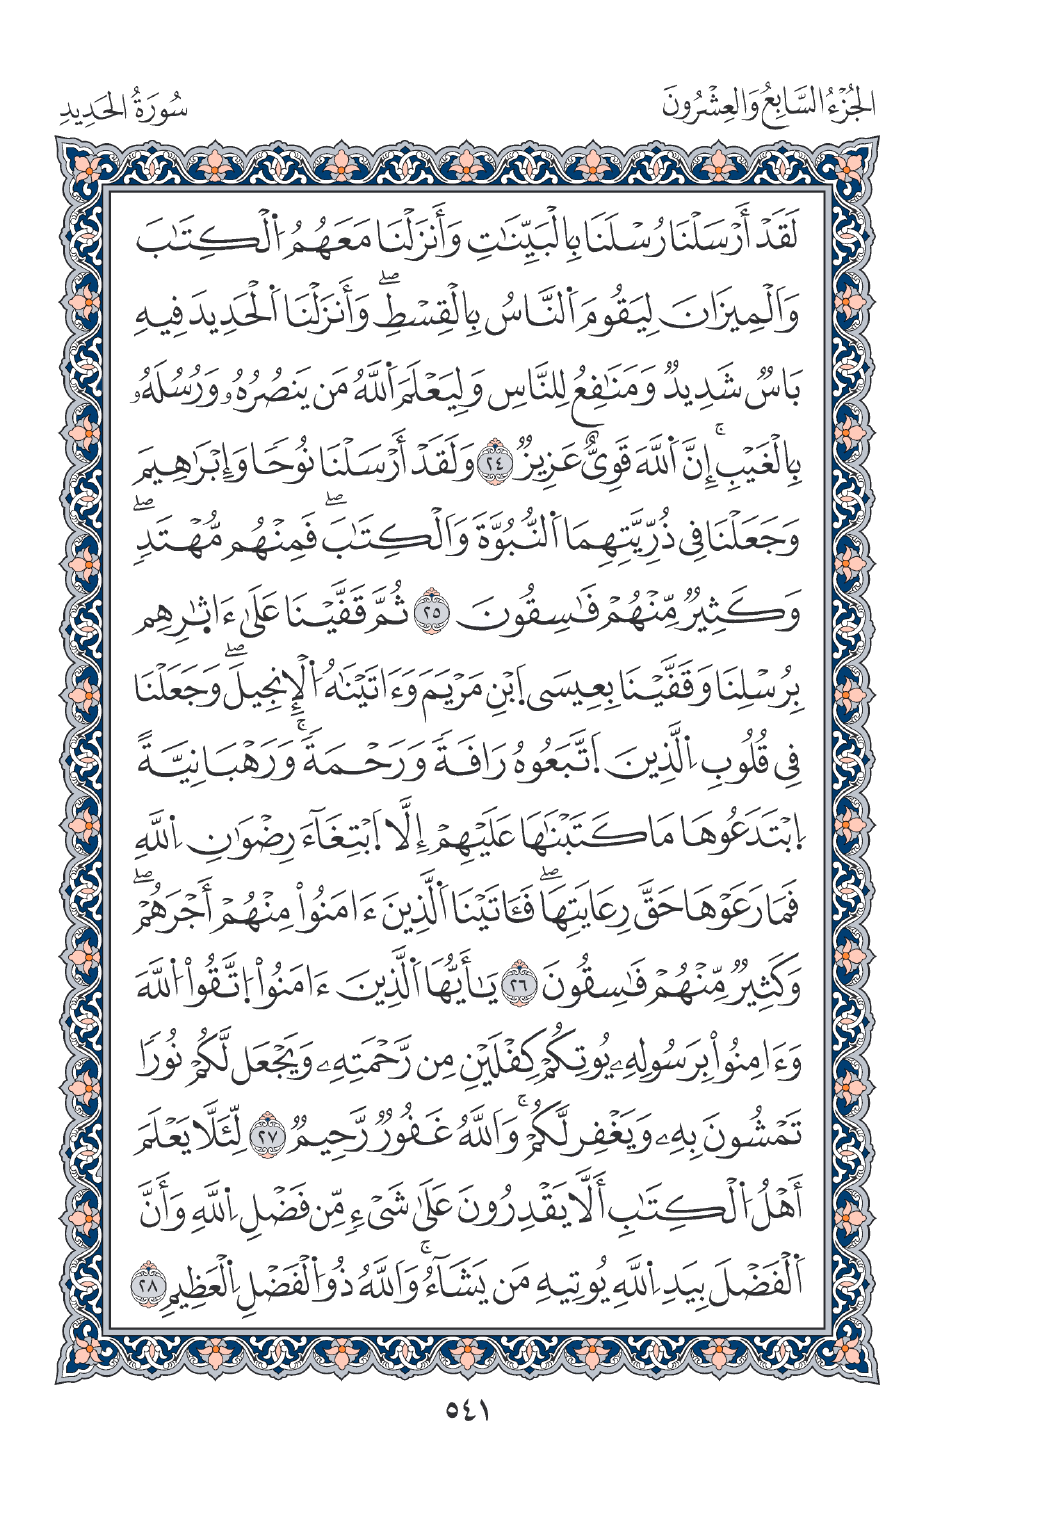 الجُزْءُ السَّابِعُ وَالعِشْرُونَ
سُورَةُ الحَدِيدِ
لَقَدْ أَرْسَلْنَا رُسُلَنَا بِالْبَيِّنَٰتِ وَأَنزَلْنَا مَعَهُمُ اُ۬لْكِتَٰبَ
وَالْمِيزَانَ لِيَقُومَ اَ۬لنَّاسُ بِالْقِسْطِۖ وَأَنزَلْنَا اَ۬لْحَدِيدَ فِيهِ
بَاسٌ شَدِيدٌ وَمَنَٰفِعُ لِلنَّاسِ وَلِيَعْلَمَ اَ۬للَّهُ مَن يَنصُرُهُۥ وَرُسُلَهُۥ
بِالْغَيْبِۚ إِنَّ اَ۬للَّهَ قَوِيٌّ عَزِيزٌ ٢٤ وَلَقَدْ أَرْسَلْنَا نُوحًا وَإِبْرَٰهِيمَ
وَجَعَلْنَا فِي ذُرِّيَّتِهِمَا اَ۬لنُّبُوَّةَ وَالْكِتَٰبَۖ فَمِنْهُم مُّهْتَدٖۖ
وَكَثِيرٌ مِّنْهُمْ فَٰسِقُونَ ٢٥ ثُمَّ قَفَّيْنَا عَلَىٰ ءَاثٰ۪رِهِم
بِرُسْلِنَا وَقَفَّيْنَا بِعِيسَى اَ۪بْنِ مَرْيَمَ وَءَاتَيْنَٰهُ اُ۬لْإِنجِيلَۖ وَجَعَلْنَا
فِي قُلُوبِ اِ۬لَّذِينَ اَ۪تَّبَعُوهُ رَافَةً وَرَحْمَةًۚ وَرَهْبَانِيَّةً
اِ۪بْتَدَعُوهَا مَا كَتَبْنَٰهَا عَلَيْهِمْ إِلَّا اَ۪بْتِغَآءَ رِضْوَٰنِ اِ۬للَّهِ
فَمَا رَعَوْهَا حَقَّ رِعَايَتِهَاۖ فَـَٔاتَيْنَا اَ۬لَّذِينَ ءَامَنُواْ مِنْهُمْ أَجْرَهُمْۖ
وَكَثِيرٌ مِّنْهُمْ فَٰسِقُونَ ٢٦ يَٰأَيُّهَا اَ۬لَّذِينَ ءَامَنُواْ اُ۪تَّقُواْ اُ۬للَّهَ
وَءَامِنُواْ بِرَسُولِهِۦ يُوتِكُمْ كِفْلَيْنِ مِن رَّحْمَتِهِۦ وَيَجْعَل لَّكُمْ نُورًا
تَمْشُونَ بِهِۦ وَيَغْفِر لَّكُمْۚ وَاللَّهُ غَفُورٌ رَّحِيمٌ ٢٧ لِّئَلَّا يَعْلَمَ
أَهْلُ اُ۬لْكِتَٰبِ أَلَّا يَقْدِرُونَ عَلَىٰ شَيْءٍ مِّن فَضْلِ اِ۬للَّهِ وَأَنَّ
اَ۬لْفَضْلَ بِيَدِ اِ۬للَّهِ يُوتِيهِ مَن يَشَآءُۚ وَاللَّهُ ذُو اُ۬لْفَضْلِ اِ۬لْعَظِيمِ ٢٨
٥٤١